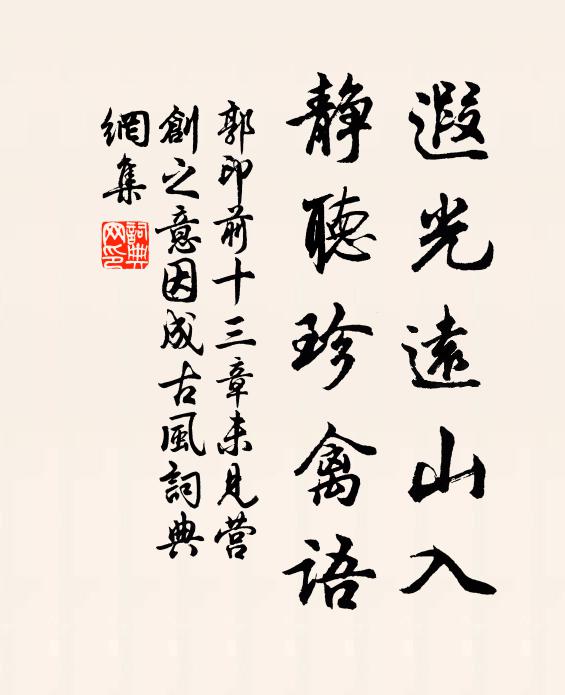 遐光遠山入
静聽珍禽語
郭印前十三章未見营
創之意因成古風詞典
網集
詞典网印